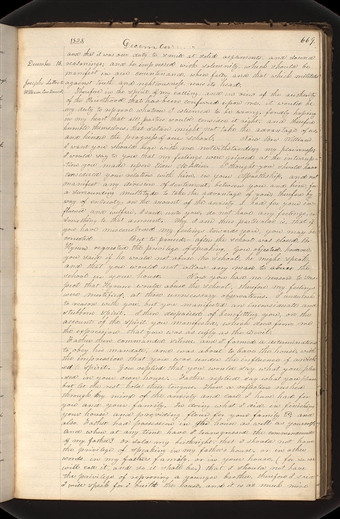 1835
December
669.
and that it was our duty to submit to solid arguments, and sound
December 18.
reasonings, and be impressed with solemnity, which should be
manifest in our countenance, when folly and that which militates
Joseph's letter to
against truth and righteousness rears its head.
William
Therefore in the spirit of my calling and in view of the authority
of the Priesthood that has been conferred upon me, it would be
my duty to reprove whatever I esteemed to be wrong, fondly hoping
in my heart that all parties would consider it right, and therefore
humble themselves, that Satan might not take the advantage of us
and hinder the progress of our School.
Now Bro. William
I want you should bear with me, notwithstanding my plainness,
I would say to you that my feelings were grieved at the interrup-
tion you made upon
I thought you should have
considered your relation with him in your Apostleship, and not
manifest any division of sentiment between you and him for
a surrounding multitude to take the advantage of you; therefore by
way of entreaty, on the account of the anxiety I had for your in-
fluence and welfare, I said unto you, do not have any feeling, or
something to that amount. Why I am thus particular, is that if
you have misconstrued my feelings toward you, you may be
corrected.
But to proceed. After the school was closed, Bro.
Hyrum requested the privilege of speaking; you objected, however,
you said if he would not abuse the school, he might speak,
and that you would not allow any man to abuse the
school in your house.
Now you had no reason to sus-
pect that Hyrum would abuse the school; therefore my feelings
were mortified at those unnecessary observations. I undertook
to reason with you, but you manifested an inconsiderate and
stubborn spirit. I then despaired of benefitting you, on the
account of the spirit you manifested, which drew from me
the expression that you was as ugly as the devil.
Father then commanded silence, and I formed a determination
to obey his mandate, and was about to leave the house with
the impression that you was under the influence of a wick-
ed spirit. You replied that you would say what you pleas-
ed in your own house. Father replied, say what you please,
but let the rest hold their tongues. Then a reflection rushed
through my mind, of the anxiety and care I have had for
you and your family, in doing what I did, in finishing
your house and providing flour for your family &c. and
also, Father had possession in the house as well as yourself;
and when at any time have I transgressed the commandments
of my father? or sold my birthright, that I should not have
the privilege of speaking in my father's house, or in other
words in my father's family, or in your house, (for so we
will call it, and so it shall be,) that I should not have
the privilege of reproving a younger brother. Therefore I said
I will speak, for I built the house, and it is as much mine